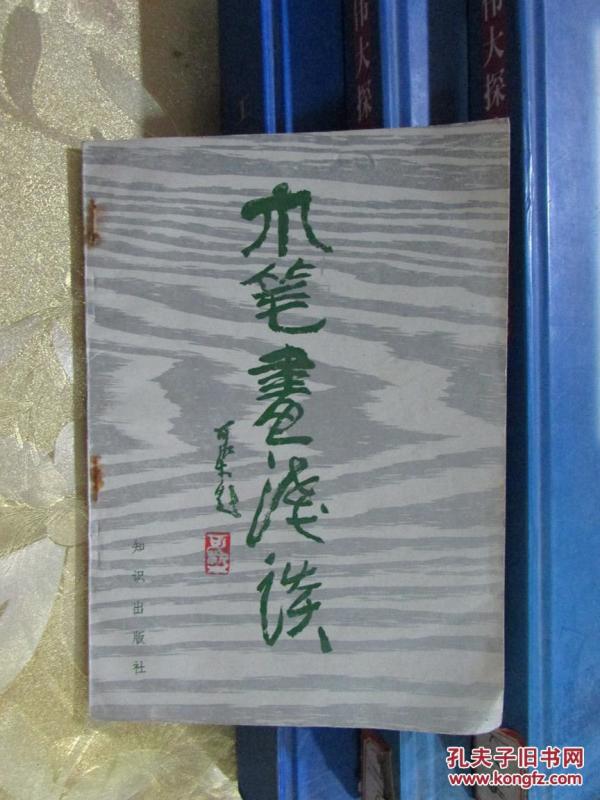 木笔畫浅谈
可染题
知识出版社
伟大探
伟大探
工
孔夫子旧书网
www.kongfz.com